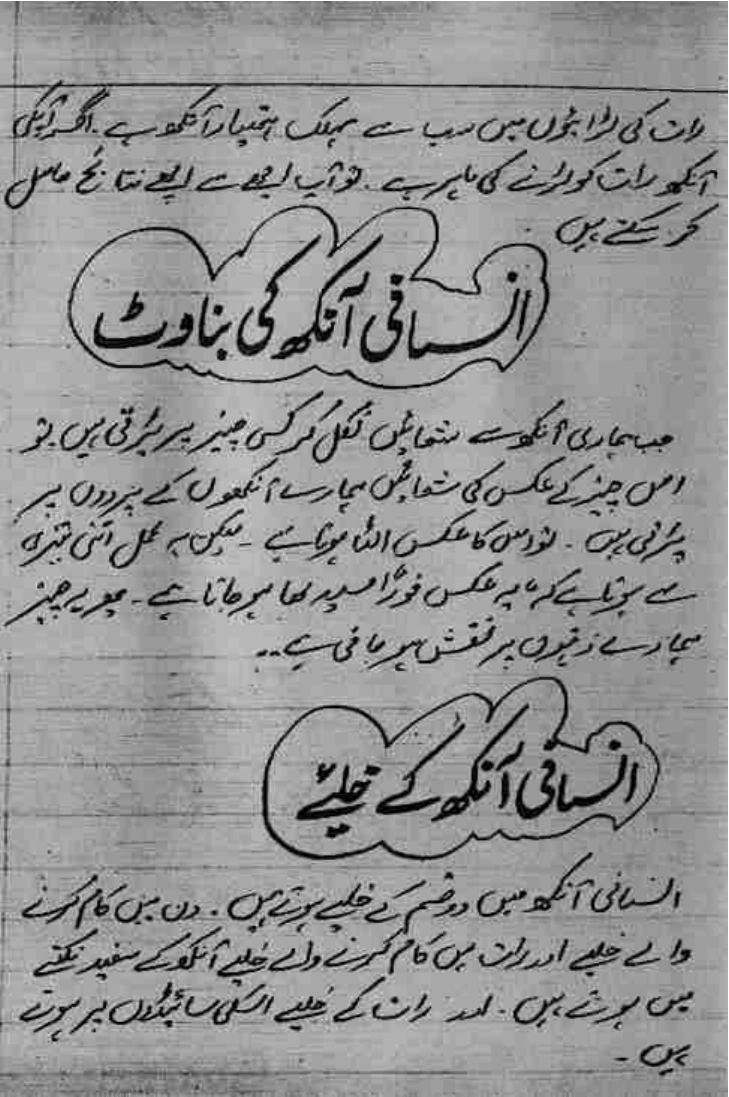 رات کی لڑائیوں میں سب سے مہلک ہتھیار آنکھ ہے۔ اگر آپکی
آنکھ رات کو لڑنے کی ماہر ہے۔ تو آپ اچھے سے اچھے نتائج حاصل
کر سکتے ہیں
انسانی آنکھ کی بناوٹ
جب ہماری آنکھ سے شعائیں نکل کر کسی چیز پر پڑتی ہیں تو
اس چیز کے عکس کی شعائیں ہمارے آنکھوں کے پردوں پر
پڑتی ہیں۔ تو اس کا عکس الٹا ہوتا ہے۔ لیکن یہ عمل اتنی تیزی
سے ہوتا ہے کہ یہ عکس فوراً سیدھا ہو جاتا ہے۔ چیز
ہمارے ذہنوں پر نقش ہو جاتی ہے۔۔
انسانی آنکھ کے خلیے
انسانی آنکھ میں دو قسم کے خلیے ہوتے ہیں۔ دن میں کام کرنے
والے خلیے اور رات میں کام کرنے والے خلیے آنکھ کے سفید نکتے
میں ہوتے ہیں۔ اور رات کے خلیے اسکی سائیڈوں پر ہوتے
ہیں۔